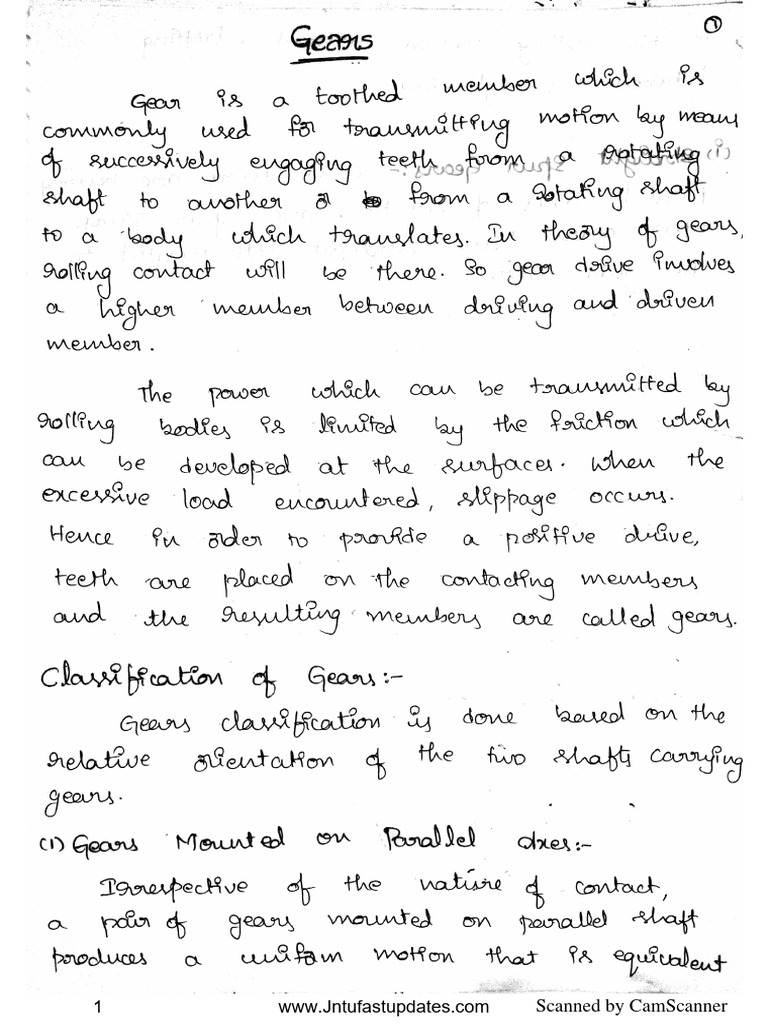 ①
Gears
Gear is a toothed member which is
commonly used for transmitting motion by means
of successively engaging teeth from a rotating
shaft to another or from a rotating shaft
to a body which translates. In theory of gears,
rolling contact will be there. So gear drive involves
a higher member between driving and driven
member.
The power which can be transmitted by
rolling bodies is limited by the friction which
can be developed at the surfaces. When the
excessive load encountered, slippage occurs.
Hence in order to provide a positive drive,
teeth are placed on the contacting members
and the resulting members are called gears.
Classification of Gears:-
Gears classification is done based on the
relative orientation of the two shafts carrying
gears.
(1) Gears Mounted on Parallel axes:-
Irrespective of the nature of contact,
a pair of gears mounted on parallel shaft
produces a uniform motion that is equivalent
1 www.Jntufastupdates.com Scanned by CamScanner